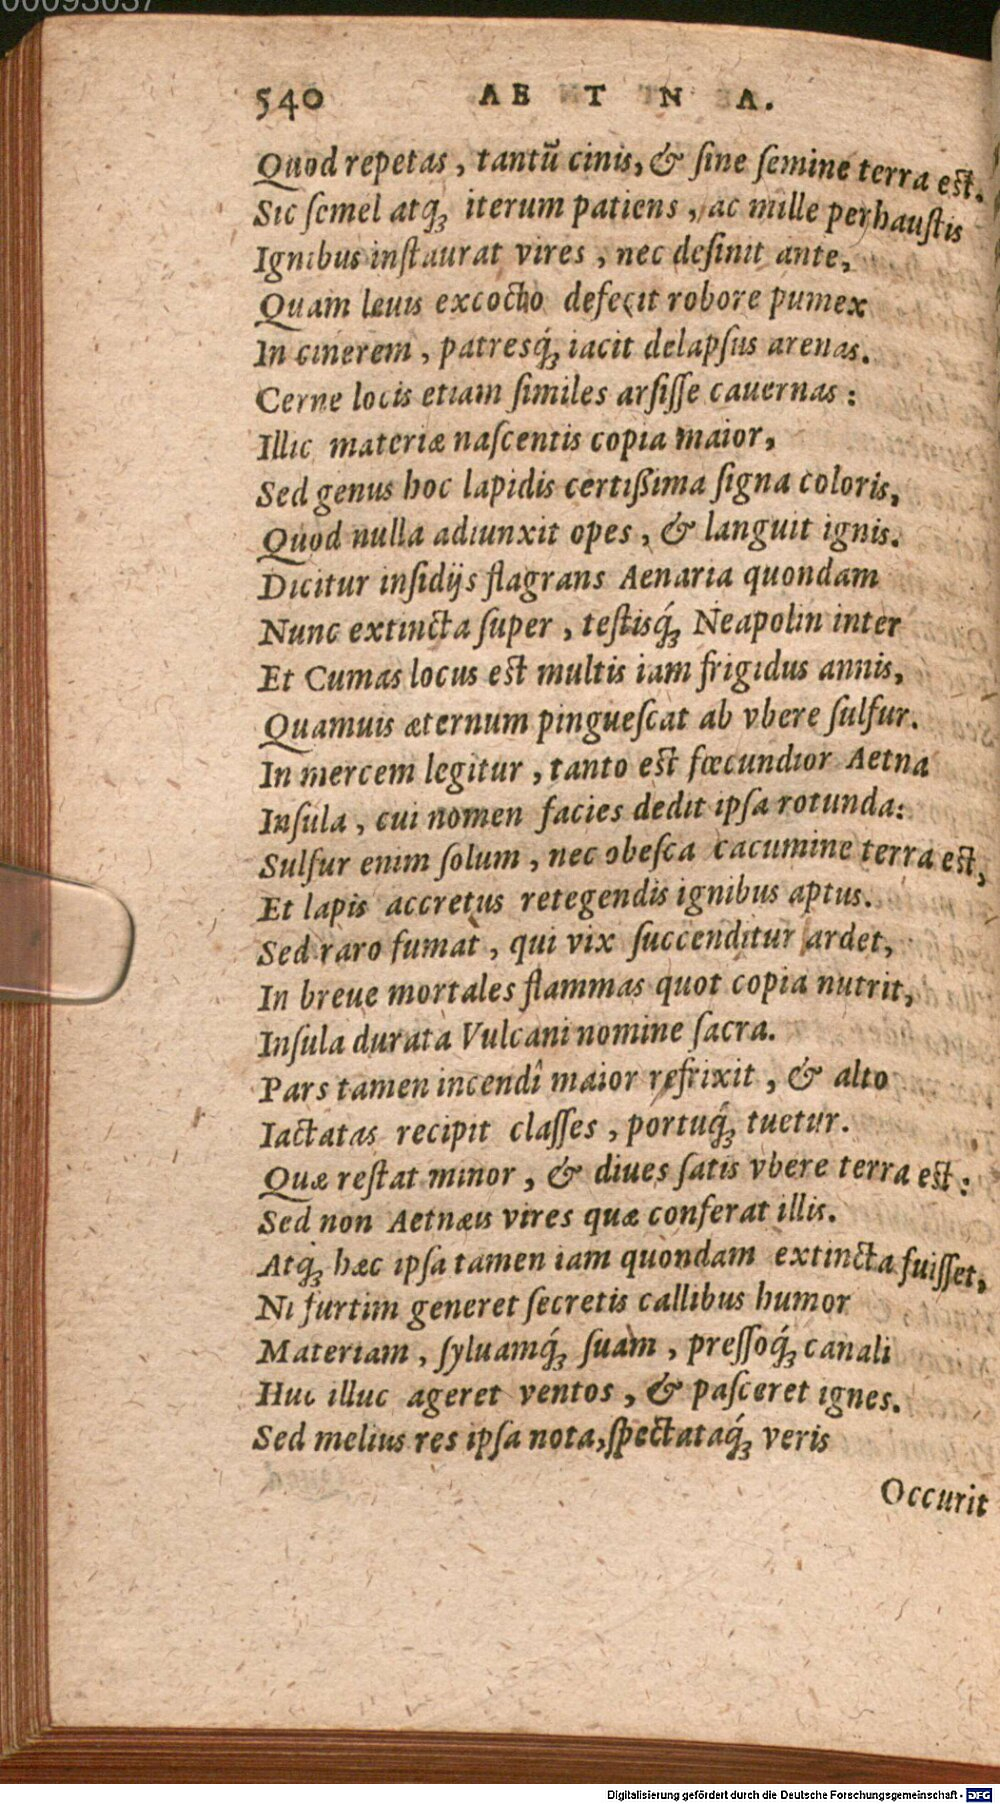 00093037
540 AETNA.
Quod repetas, tantū cinis, & ſine ſemine terra eſt.
Sic ſemel atq; iterum patiens, ac mille perhauſtis
Ignibus inſtaurat vires, nec deſinit ante,
Quam leuis excocto defecit robore pumex
In cinerem, patresq́; iacit delapſus arenas.
Cerne locis etiam ſimiles arſiſſe cauernas:
Illic materiæ naſcentis copia maior,
Sed genus hoc lapidis certißima ſigna coloris,
Quod nulla adiunxit opes, & languit ignis.
Dicitur inſidijs flagrans Aenaria quondam
Nunc extincta ſuper, teſtisq́; Neapolin inter
Et Cumas locus eſt multis iam frigidus annis,
Quamuis æternum pingueſcat ab vbere ſulfur.
In mercem legitur, tanto eſt fœcundior Aetna
Inſula, cui nomen facies dedit ipſa rotunda:
Sulfur enim ſolum, nec obeſca cacumine terra eſt,
Et lapis accretus retegendis ignibus aptus.
Sed raro fumat, qui vix ſuccenditur ardet,
In breue mortales flammas quot copia nutrit,
Inſula durata Vulcani nomine ſacra.
Pars tamen incendî maior refrixit, & alto
Iactatas recipit claſſes, portuq́; tuetur.
Quæ reſtat minor, & diues ſatis vbere terra eſt:
Sed non Aetnæis vires quæ conferat illis.
Atq; hæc ipſa tamen iam quondam extincta fuiſſet,
Ni furtim generet ſecretis callibus humor
Materiam, ſyluamq́; ſuam, preſſoq́; canali
Huc illuc ageret ventos, & paſceret ignes.
Sed melius res ipſa nota, ſpectataq́; veris
Occurit
Digitalisierung gefördert durch die Deutsche Forschungsgemeinschaft - DFG